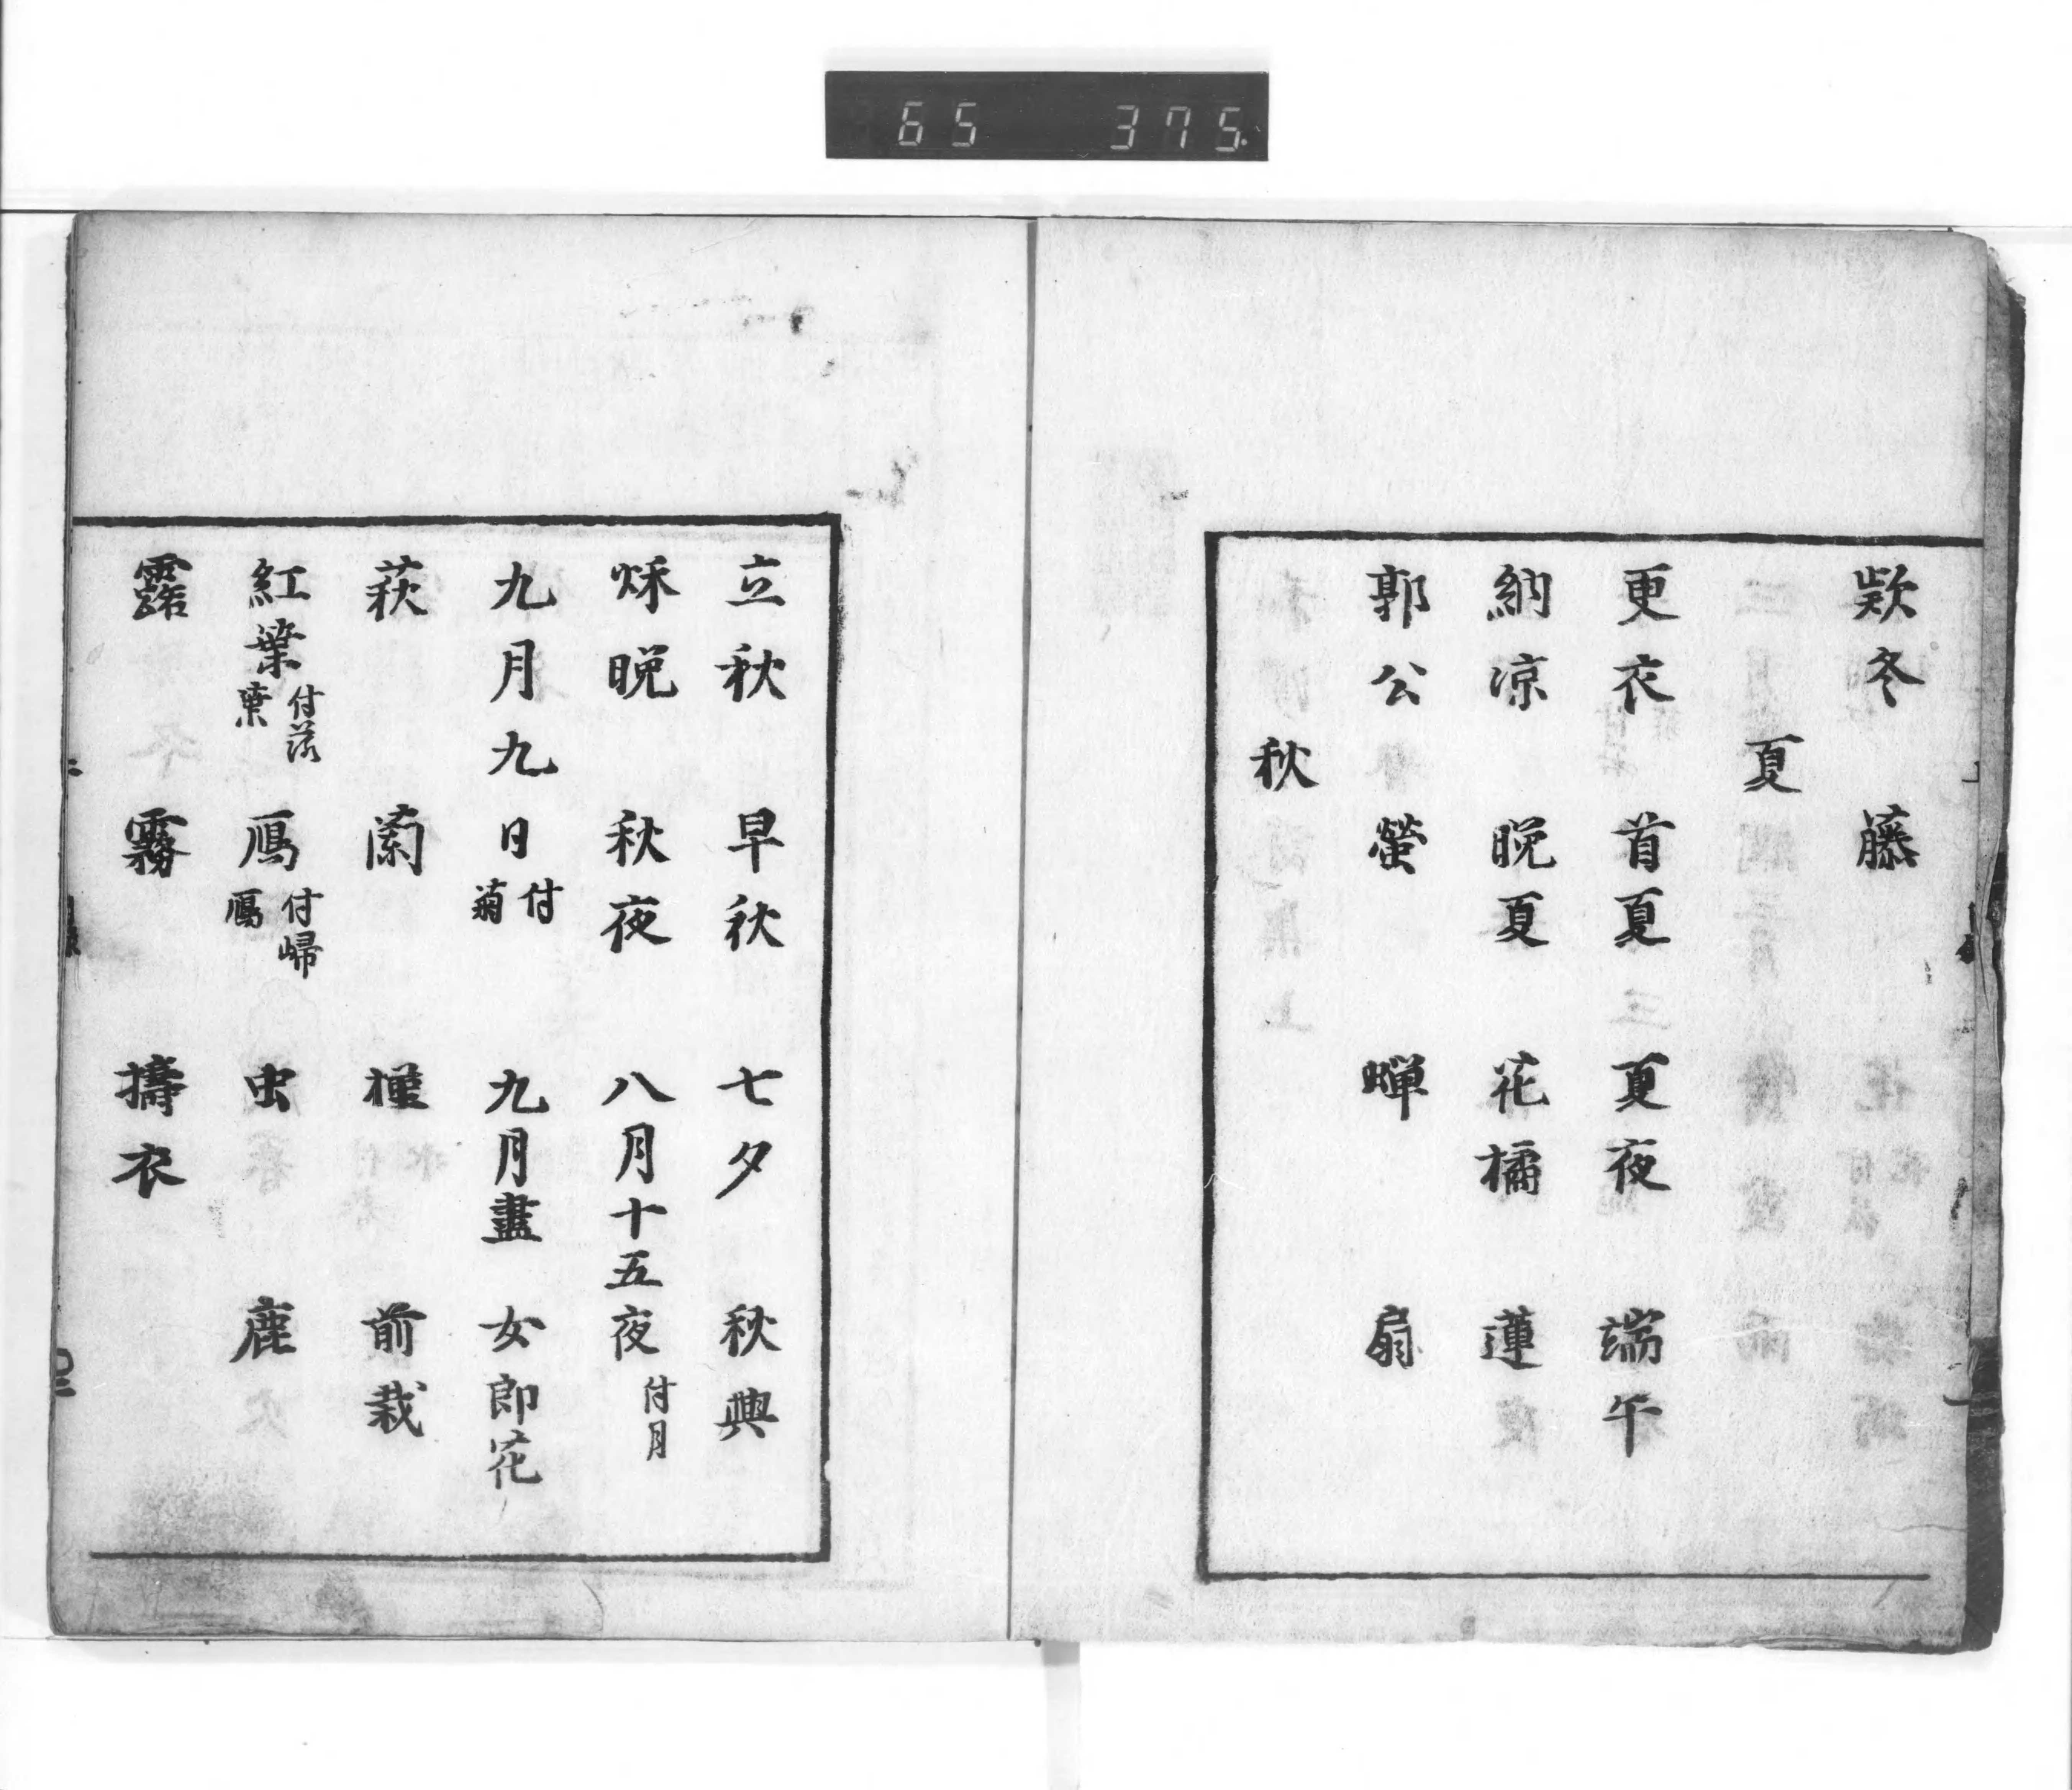 65 375
欵冬 藤
夏
更衣 首夏 夏夜 端午
納凉 晩夏 花橘 蓮
郭公 螢 蟬 扇
秋
立秋 早秋 七夕 秋興
秌晩 秋夜 八月十五夜 付月
九月九日 付菊 九月盡 女郎花
萩 蘭 槿 前栽
紅葉 付落葉 鴈 付歸鴈 虫 鹿
露 霧 擣衣